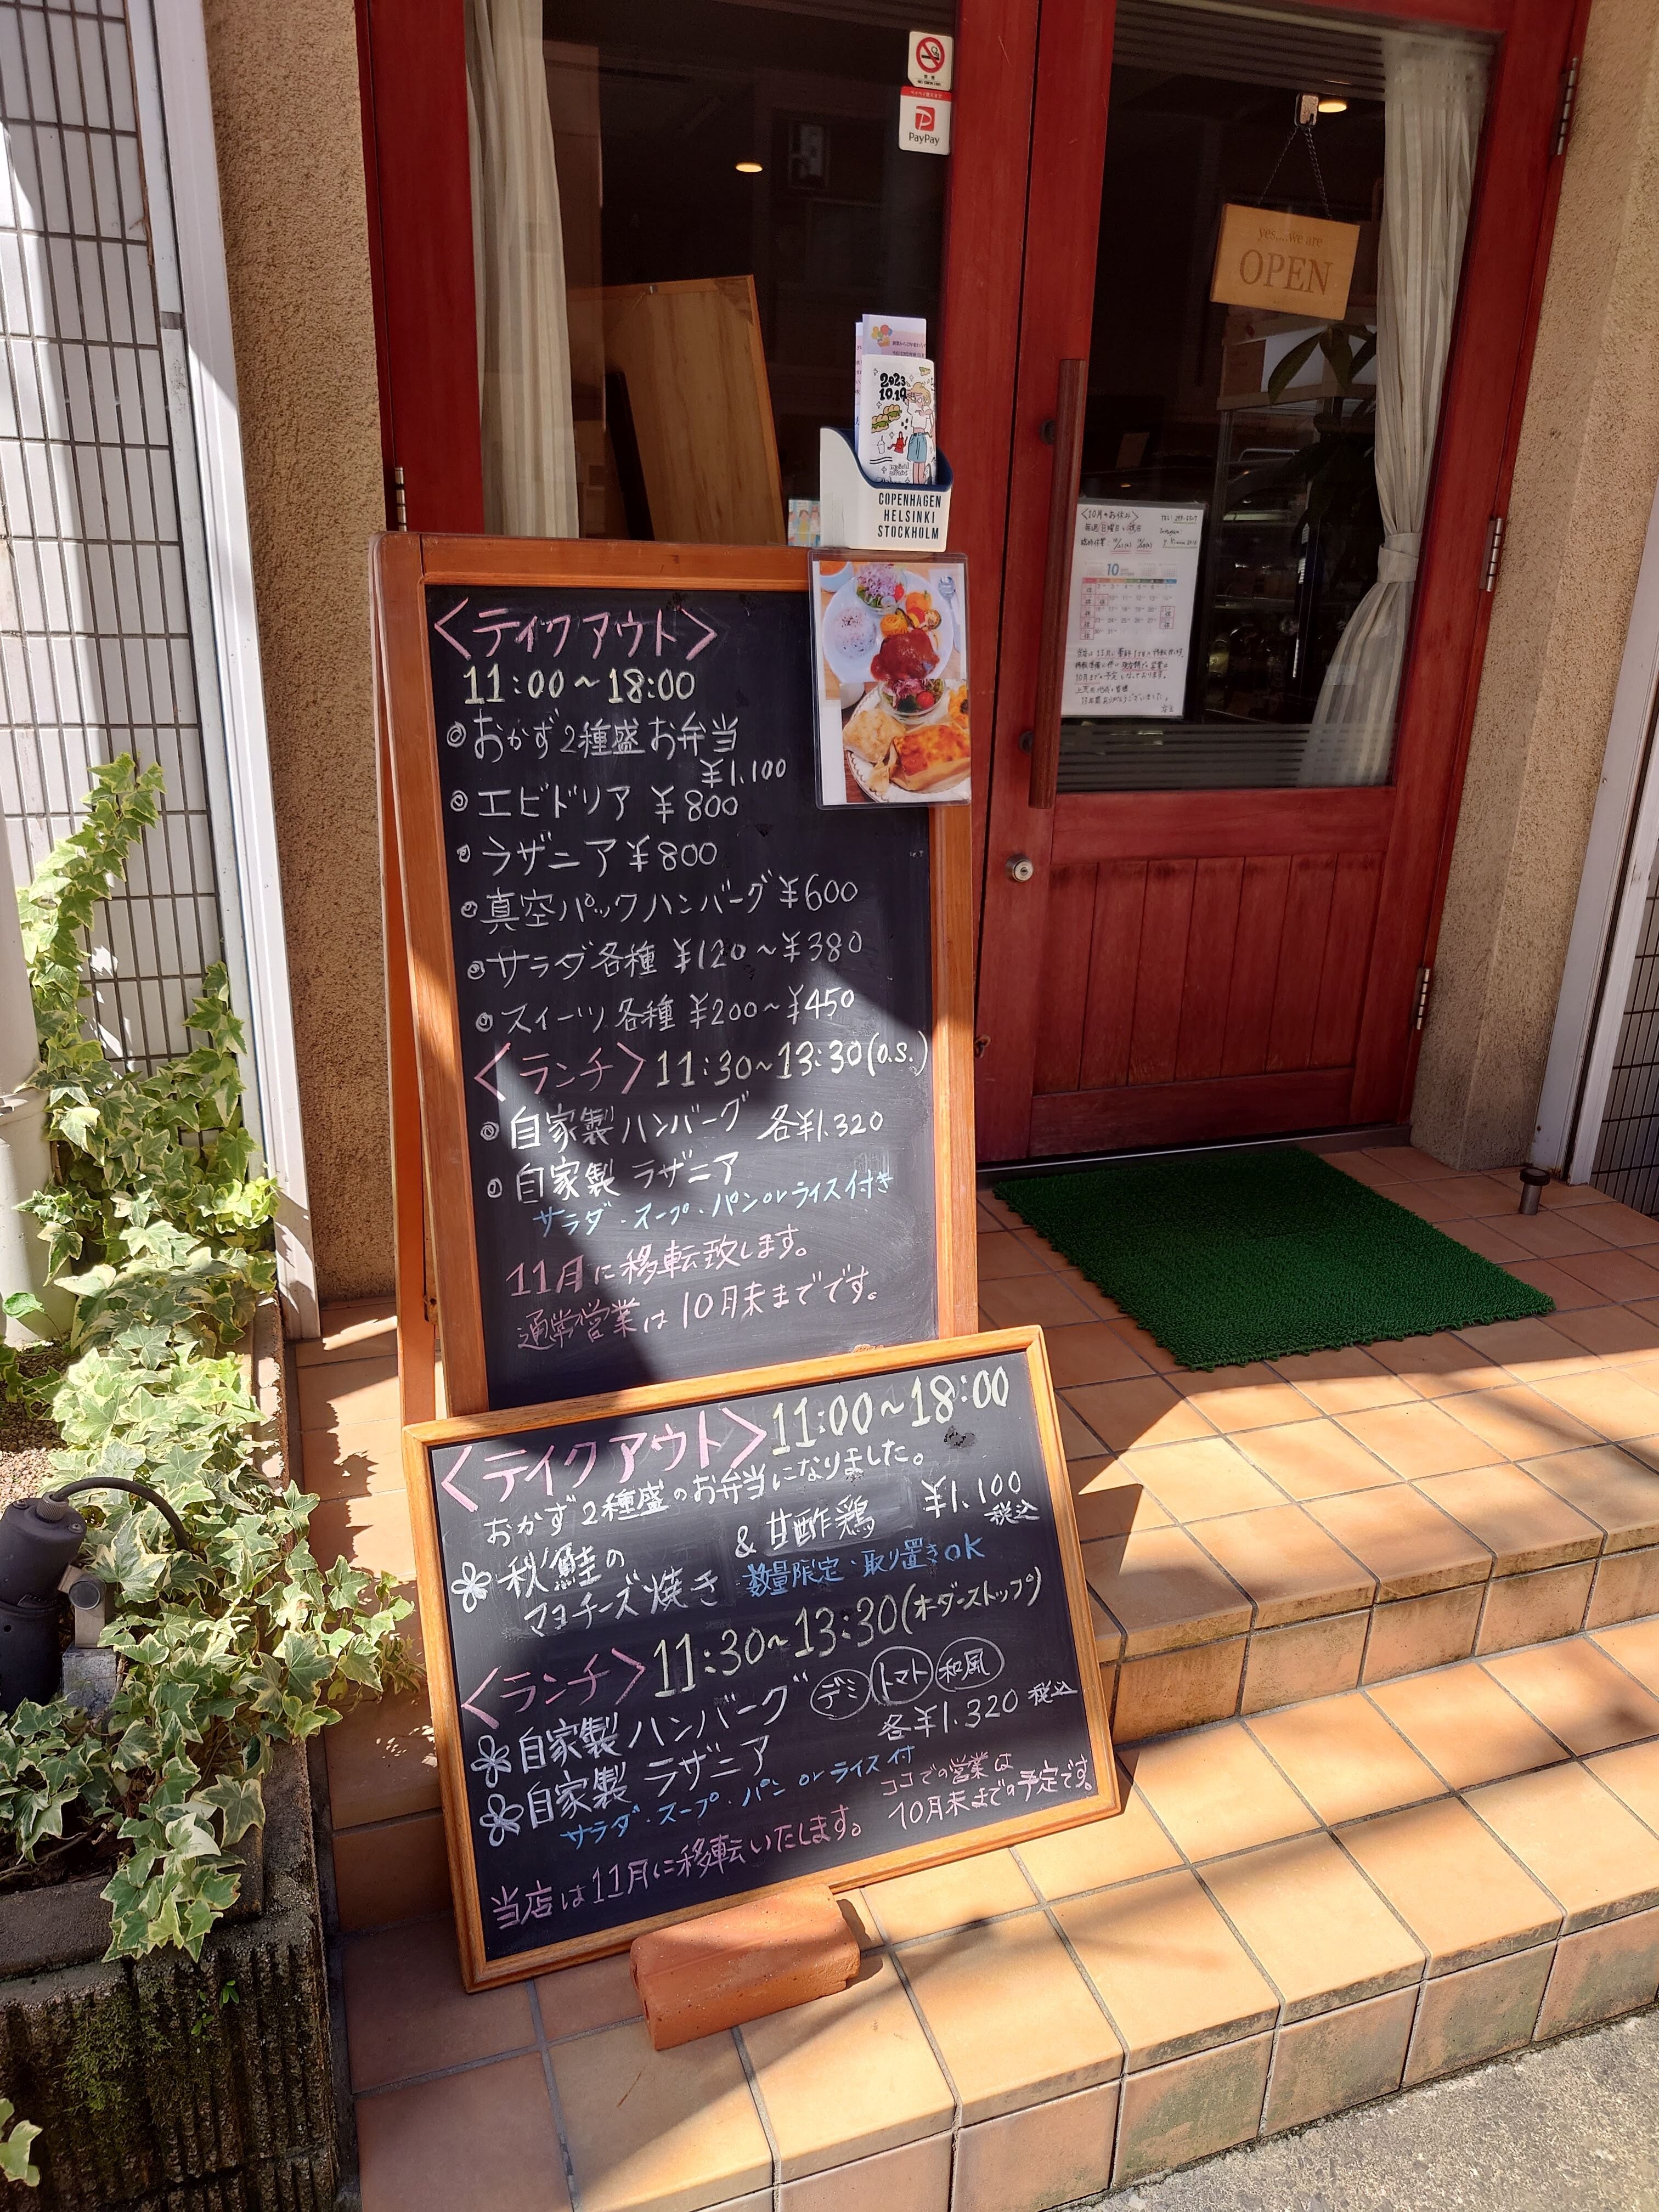 禁煙
NO SMOKING
PayPay
yes....we are
OPEN
2023
10.19
COPENHAGEN
HELSINKI
STOCKHOLM
<10月のお休み>
10
<テイクアウト>
11:00～18:00
◎おかず2種盛お弁当
¥1.100
◎エビドリア ¥800
◎ラザニア ¥800
◎真空パックハンバーグ ¥600
◎サラダ各種 ¥120～¥380
◎スイーツ各種 ¥200～¥450
<ランチ>11:30～13:30(o.s.)
◎自家製ハンバーグ 各¥1.320
◎自家製 ラザニア
サラダ・スープ・パンorライス付き
11月に移転致します。
通常営業は10月末までです。
<テイクアウト>11:00～18:00
おかず2種盛のお弁当になりました。
秋鮭の & 甘酢鶏 ¥1.100
税込
マヨチーズ焼き 数量限定・取り置きOK
<ランチ>11:30～13:30(オーダーストップ)
自家製ハンバーグ デミ トマト 和風
自家製 ラザニア 各¥1.320 税込
サラダ・スープ・パン or ライス付
ココでの営業は
10月末までの予定です。
当店は11月に移転いたします。